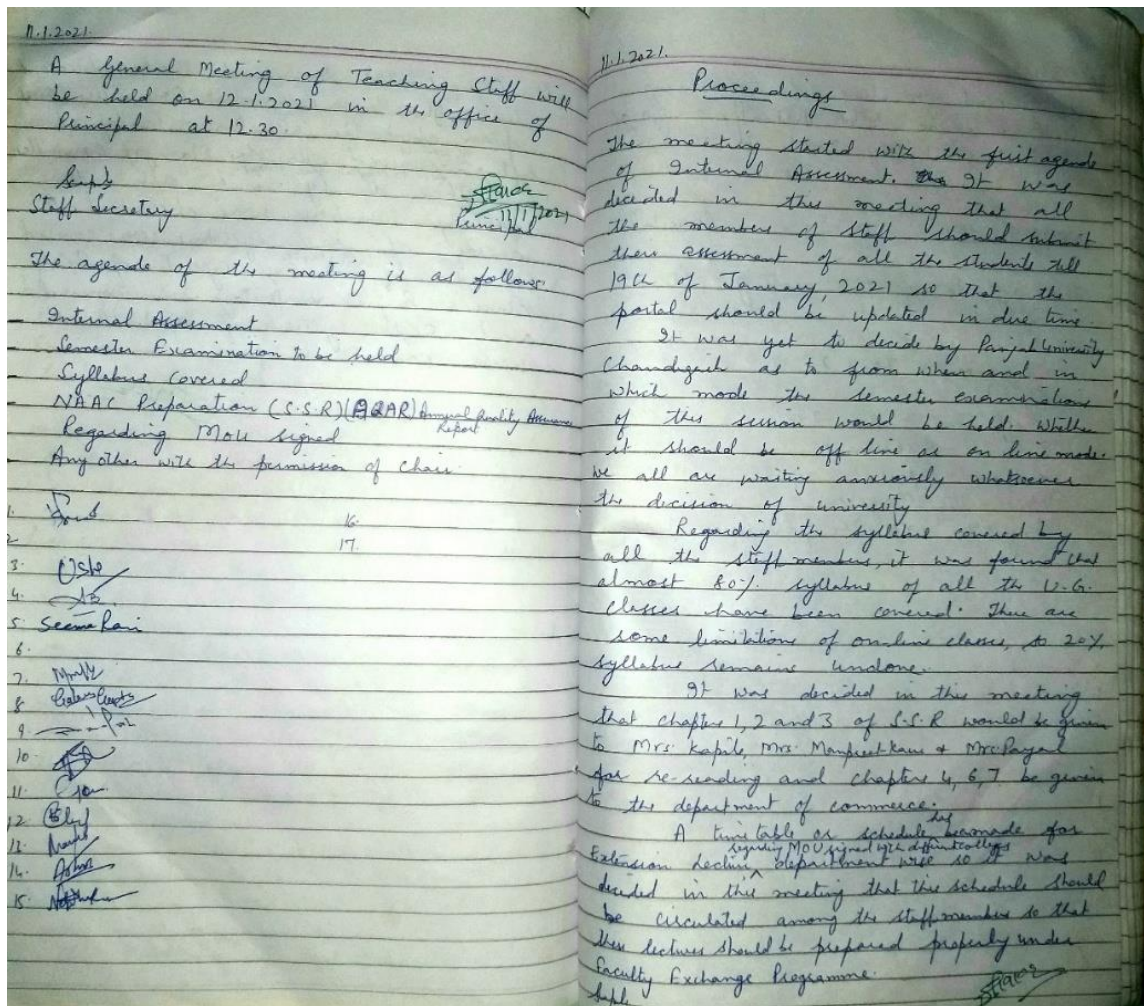 11.1.2021
A General Meeting of Teaching Staff will
be held on 12.1.2021 in the office of
Principal at 12.30.
Staff Secretary
11/1/2021
Principal
The agenda of the meeting is as follows.
- Internal Assessment
- Semester Examination to be held
- Syllabus covered
- NAAC Preparation (S.S.R) (AQAR) Annual Quality Assurance
Report
Regarding MOU signed
Any other with the permission of Chair.
1.
2
3. Usha
4.
5. Seema Rani
6.
7.
8
9.
10.
11.
12
13.
14.
15.
16.
17.
11.1.2021.
Proceedings
The meeting started with the first agenda
of Internal Assessment. It was
decided in this meeting that all
the members of staff should submit
there assessment of all the students till
19th of January, 2021 so that the
portal should be updated in due time.
It was yet to decide by Panjab University
Chandigarh as to from when and in
which mode the semester examinations
of this session would be held. Whether
it should be off line or on line mode.
we all are waiting anxiously whatsoever
the decision of university
Regarding the syllabus covered by
all the staff members, it was found that
almost 80% syllabus of all the U.G.
classes have been covered. There are
some limitations of on-line classes, so 20%
syllabus remains undone.
It was decided in this meeting
that chapter 1, 2 and 3 of S.S.R would be given
to Mrs. Kapila, Mrs. Manpreet Kaur & Mrs. Payal
for re-reading and chapter 4, 6, 7 be given
to the department of commerce.
A time table or schedule made for
regarding MOU signed with different colleges
Extension Lecture department wise so it was
decided in this meeting that this schedule should
be circulated among the staff members so that
these lectures should be prepared properly under
Faculty Exchange Programme.